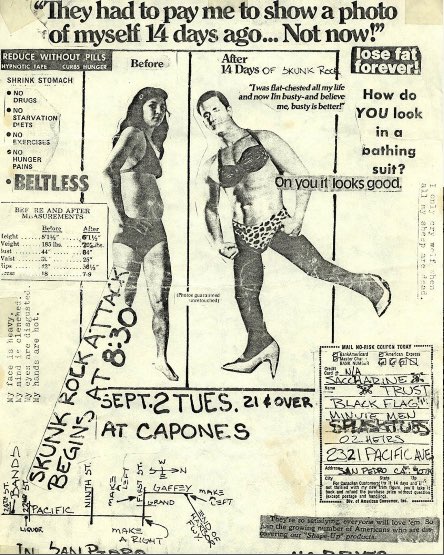 "They had to pay me to show a photo
of myself 14 days ago... Not now!"
REDUCE WITHOUT PILLS
HYPNOTIC TAPE CURBS HUNGER
SHRINK STOMACH
• NO
DRUGS
• NO
STARVATION
DIETS
• NO
EXERCISES
• NO
HUNGER
PAINS
• BELTLESS
Before
After
14 Days OF SKUNK ROCK
"I was flat-chested all my life
and now I'm busty-and believe
me, busty is better!"
lose fat
forever!
How do
YOU look
in a
bathing
suit?
On you it looks good.
BEFORE AND AFTER
MEASUREMENTS
Before After
Height
Weight 185 lbs.
Bust 44"
(Photos guaranteed
unretouched)
My face is heavy.
My mind is clenched.
My eyes are disgusted.
My hands are hot.
I only cry wolf when
all my sheep are dead.
SKUNK ROCK ATTACK
BEGINS AT 8:30
SEPT. 2 TUES. 21 & OVER
AT CAPONES
MAIL NO-RISK COUPON TODAY
BankAmericard American Express
Master Chg.
BANK NUMBER
Credit
Card # N/A
Name
SACCHARINE
TRUST
BLACK FLAG
MINUTE MEN
OZ HEIRS
2321 PACIFIC AVE
Address SAN PEDRO CA.
State
BANDS
22ND ST.
PACIFIC
LIQUOR
NINTH ST.
MAKE
LEFT
FIRST ST.
W N E S
GAFFEY
GRAND
MAKE
LEFT
MAKE
A RIGHT
END OF
HARBOR
FRWY
They're so satisfying, everyone will love 'em. So
on the growing number of Americans who are dis-
covering our "Shape-Up" products.
IN SAN PEDRO